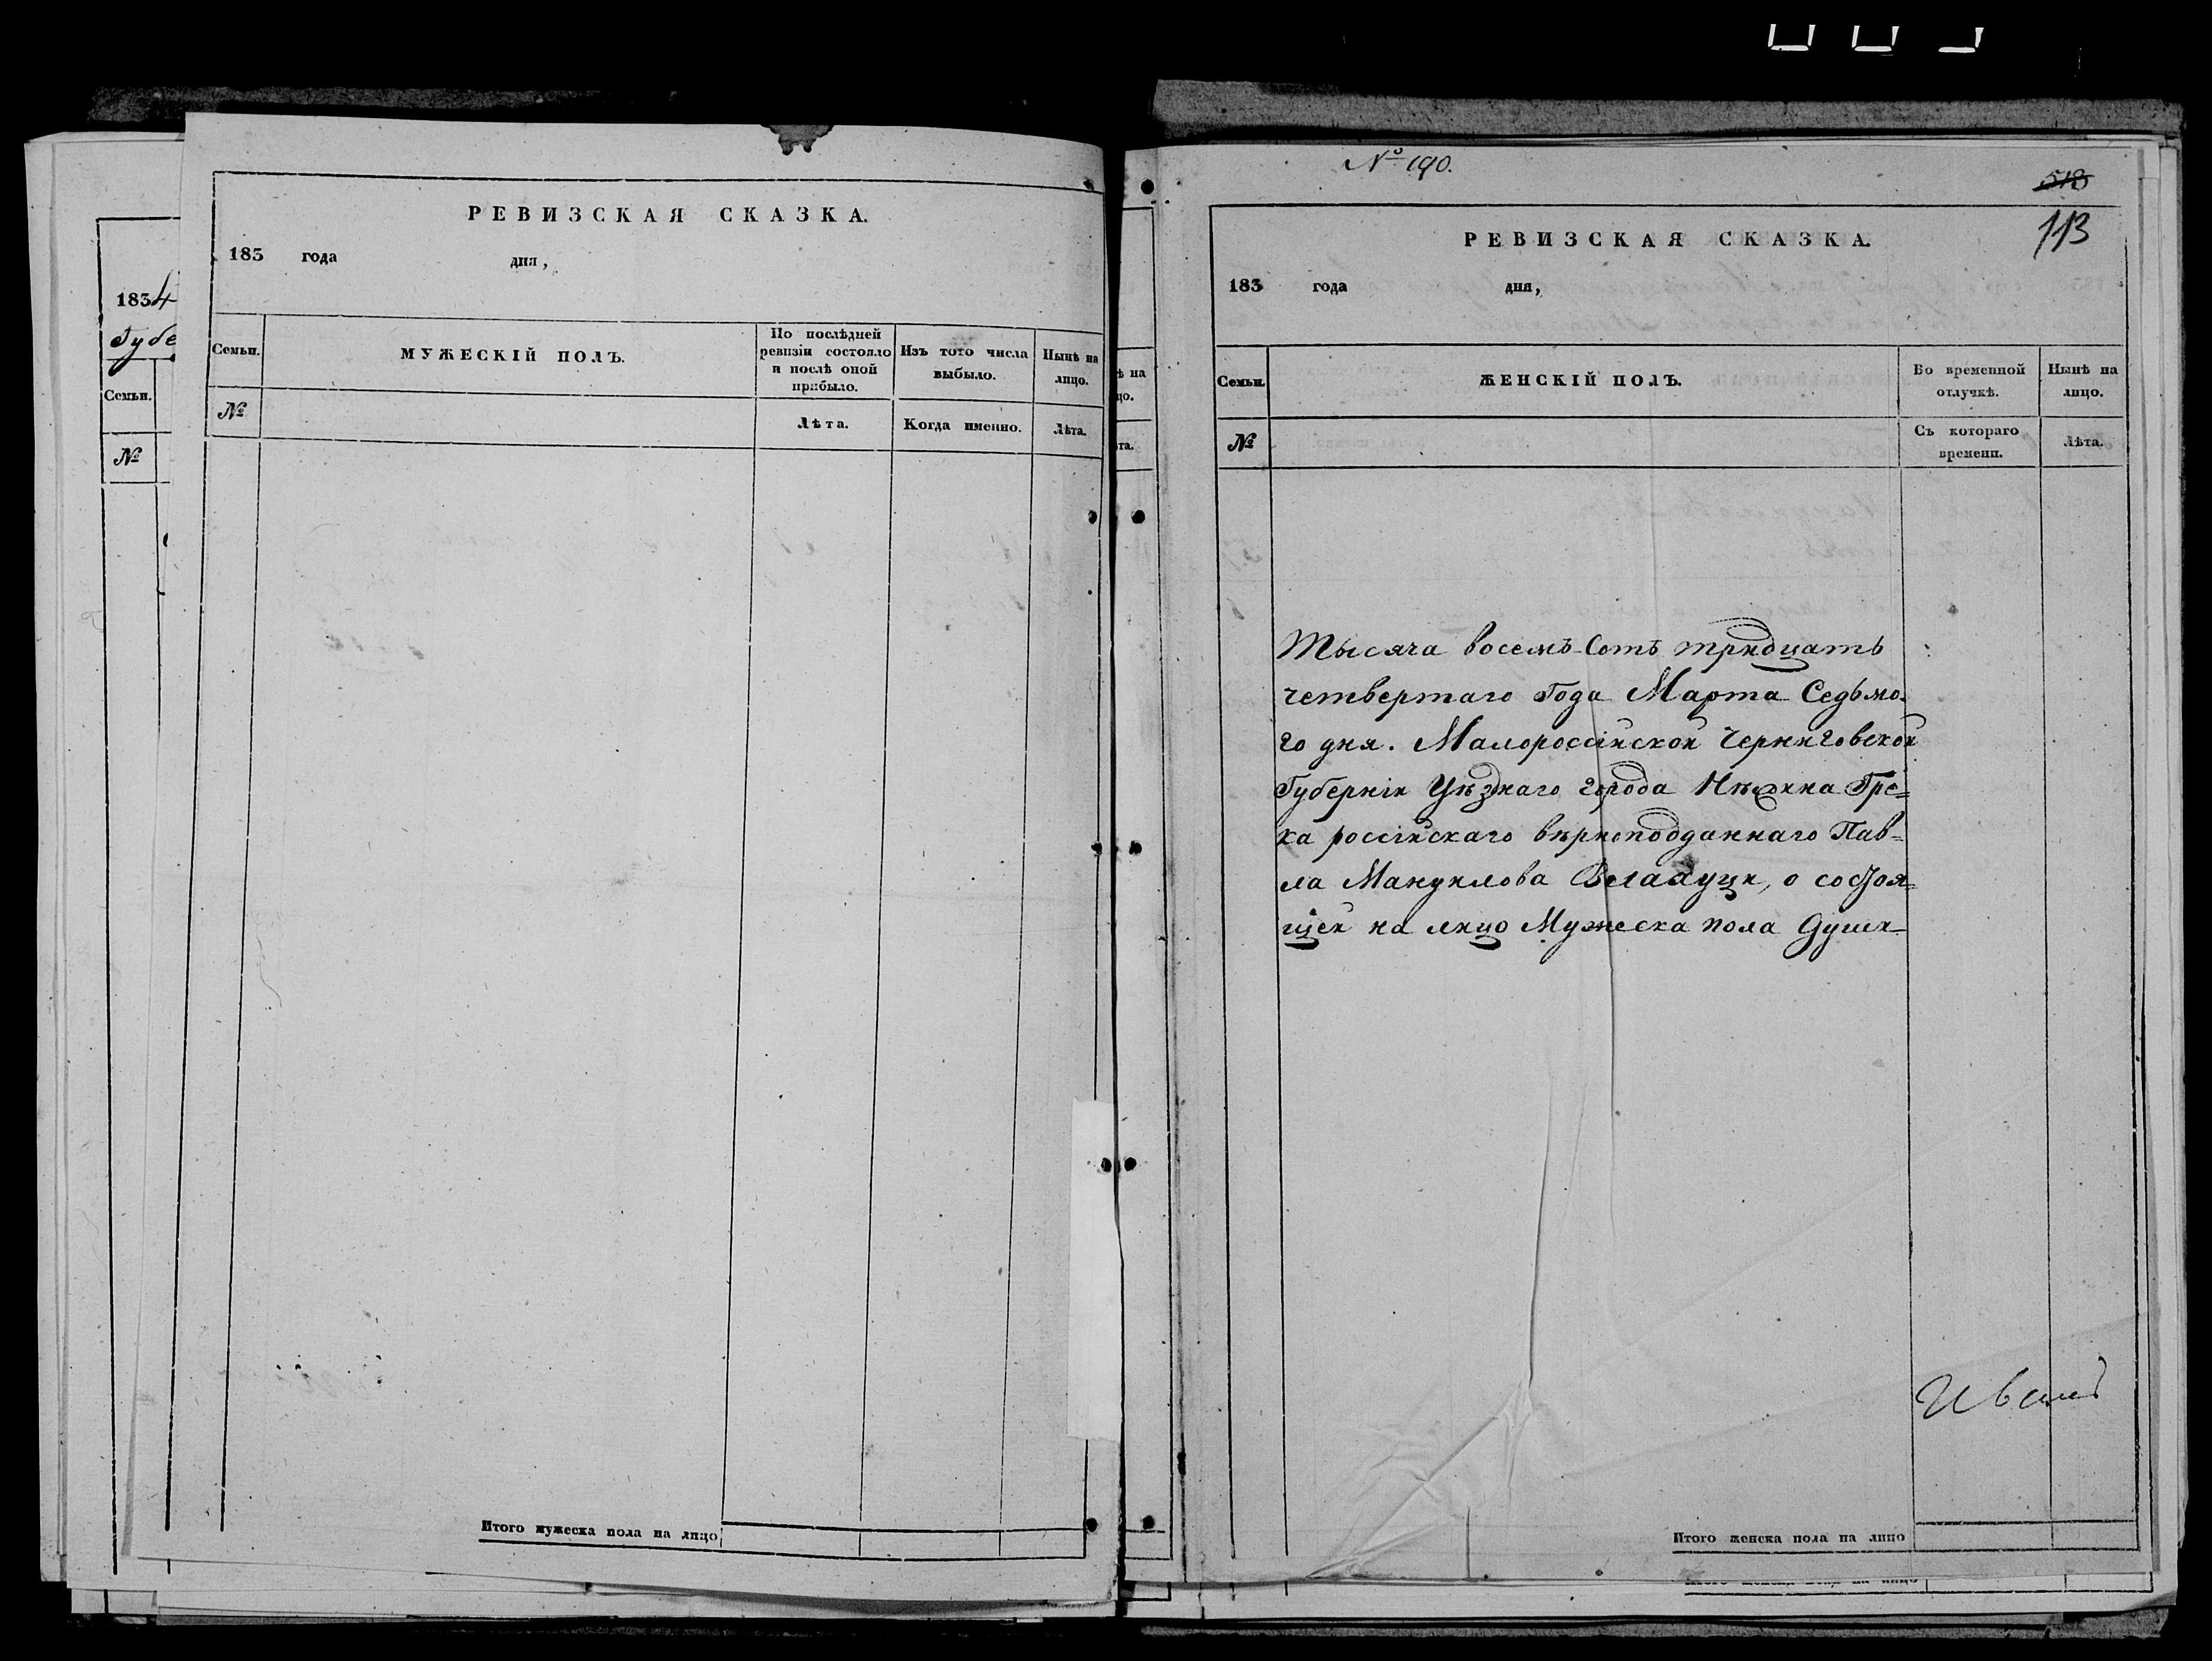 1834
Губе
Семьи.
№
РЕВИЗСКАЯ СКАЗКА.
183 года дня,
Семьи.
МУЖЕСКІЙ ПОЛЪ.
По послѣдней
ревизіи состояло
и послѣ оной
прибыло.
Изъ того числа
выбыло.
Нынѣ на
лицо.
№
Лѣта.
Когда именно.
Лѣта.
Итого мужеска пола на лицо
№ 190.
518
113
РЕВИЗСКАЯ СКАЗКА.
183 года дня,
Семьи.
ЖЕНСКІЙ ПОЛЪ.
Во временной
отлучкѣ.
Нынѣ на
лицо.
№
Съ котораго
времени.
Лѣта.
Тысяча восемъ-Сотъ тридцать
четвертаго Года Марта Седьмо-
го дня. Малороссійской Черниговской
Губерніи Уѣзднаго города Нѣжина Гре=
ка россійскаго вѣрноподданнаго Пав-
ла Мануилова
о состоя=
щей на лицо Мужеска пола Души
Итого женска пола на лицо